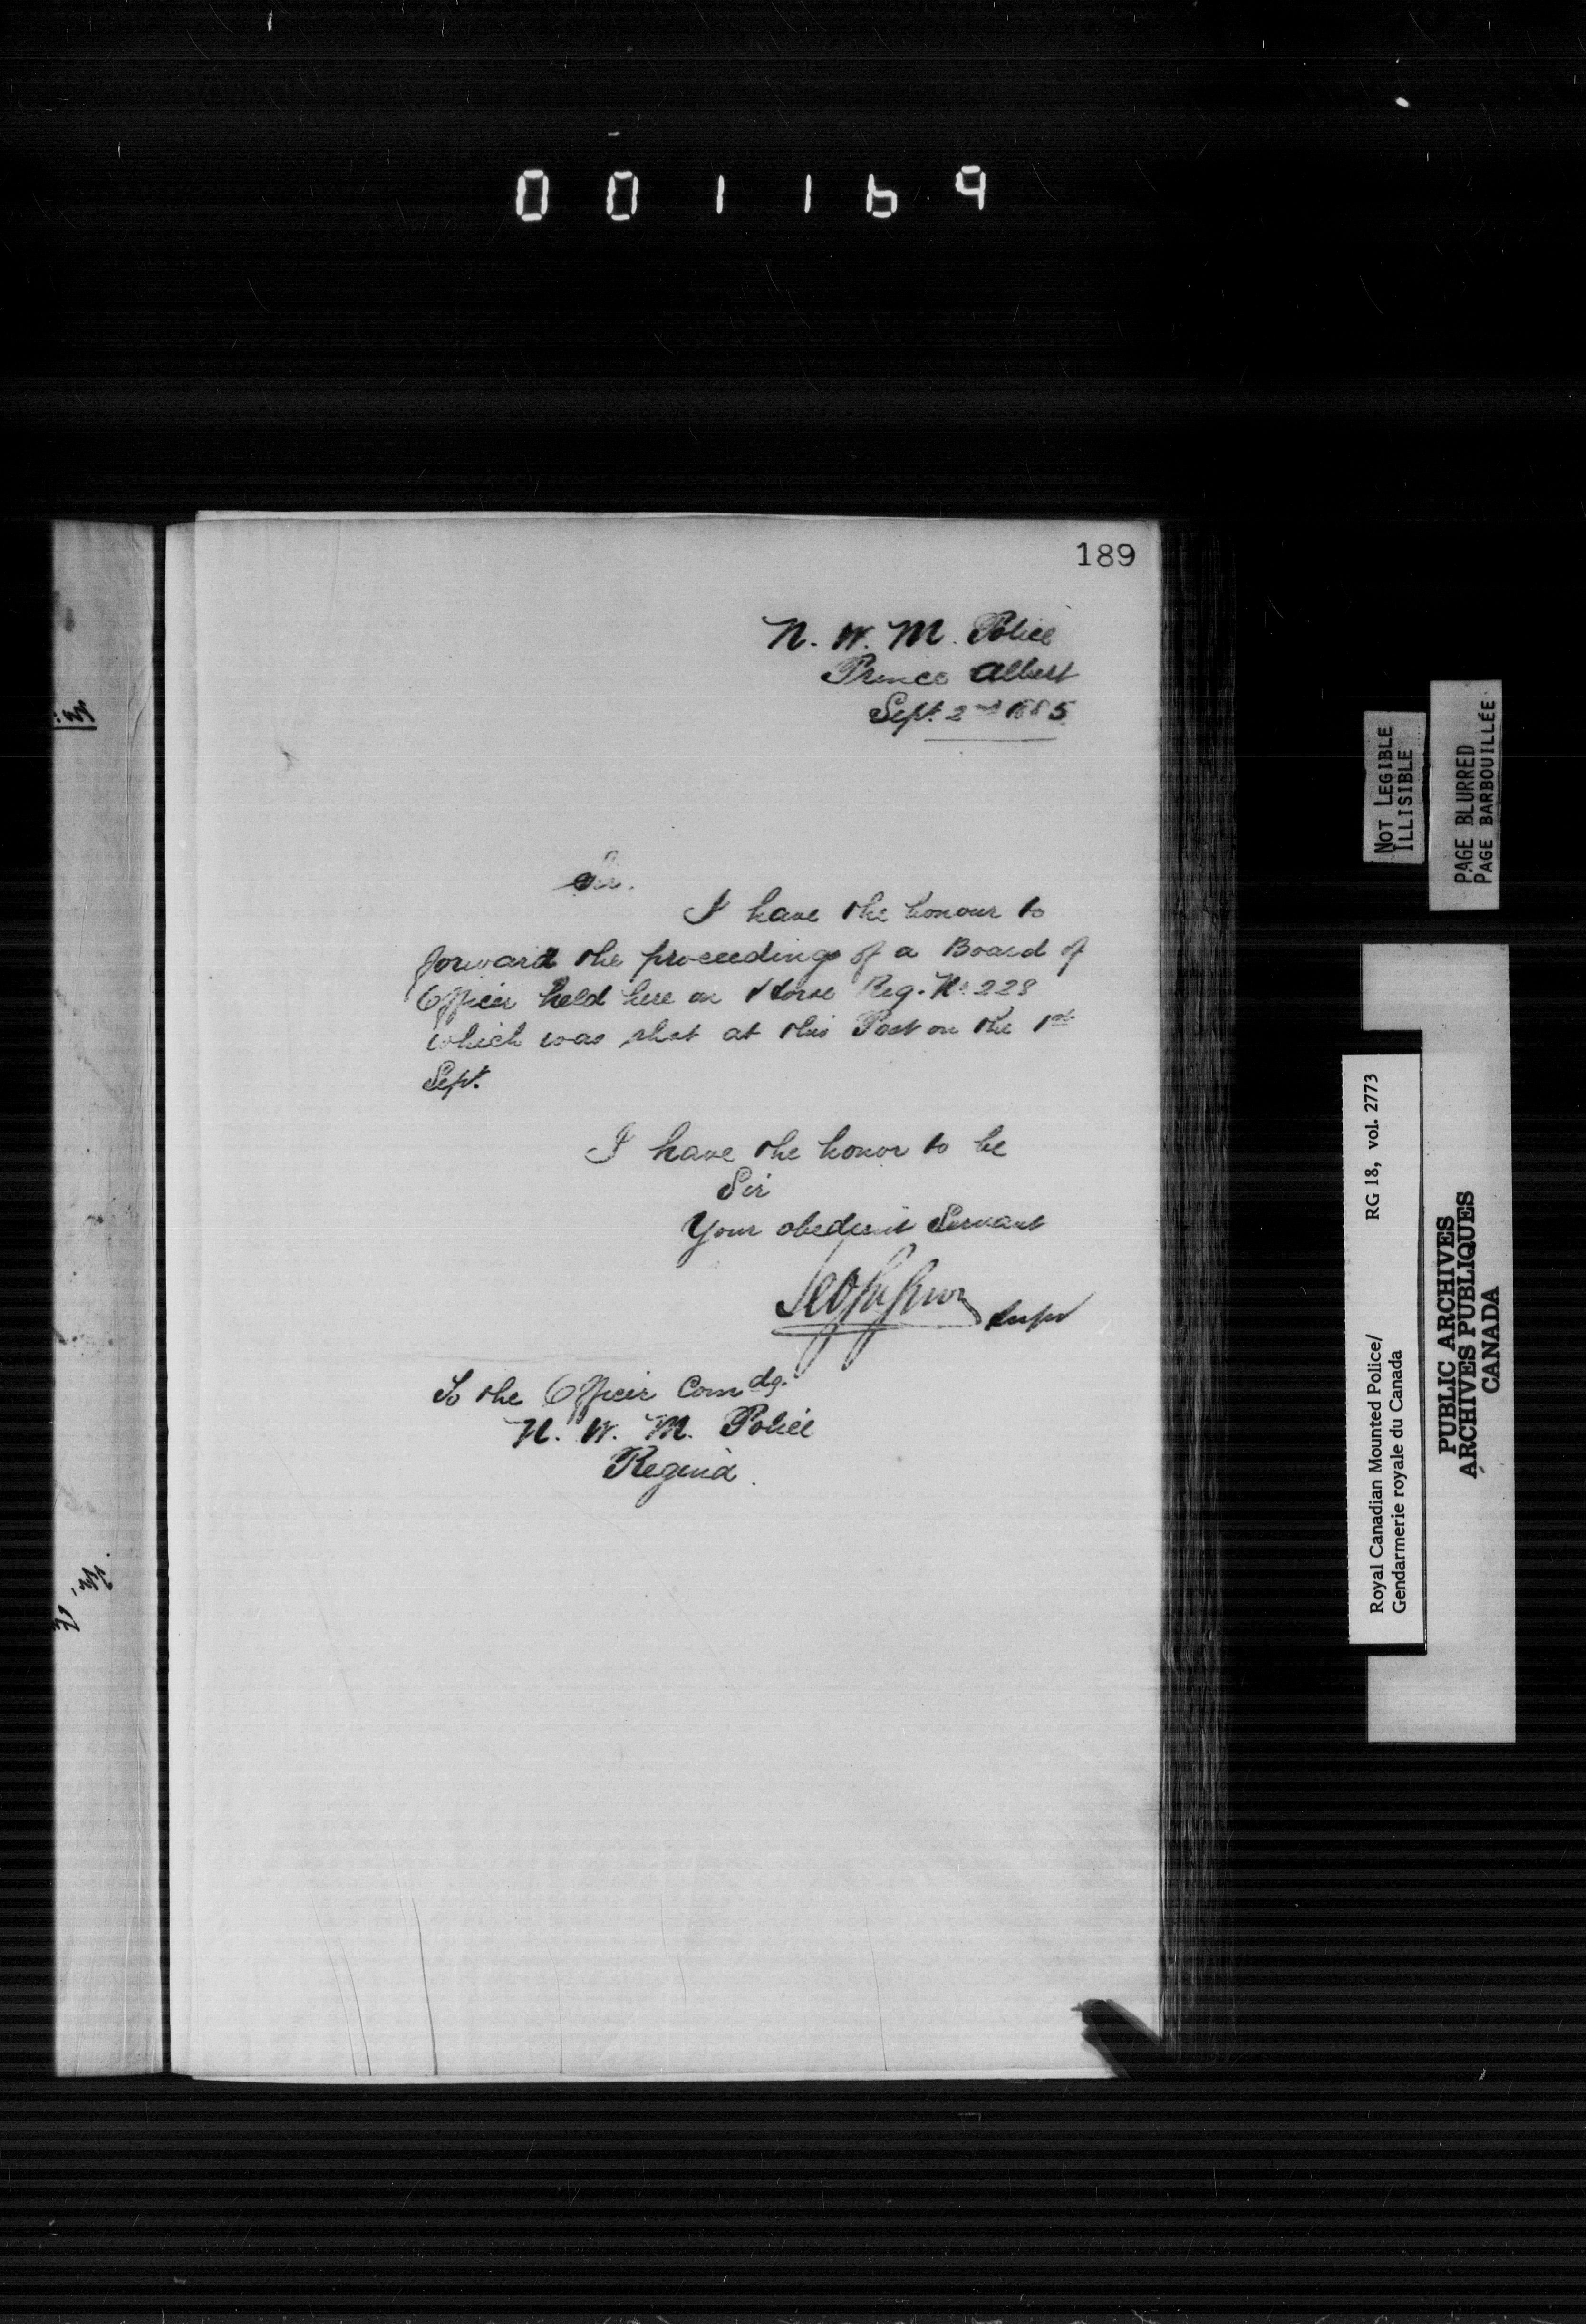 001169
189
N. W. M. Police
Prince Albert
Sept. 2nd 1885
Sir.
I have the honour to
forward the proceedings of a Board of
Officer held here on Horse Reg. No 228
which was shot at this Post on the 1st
Sept.
I have the honor to be
Sir
Your obedient Servant
Supt
To the Officer Comdg.
N. W. M. Police
Regina.
NOT LEGIBLE
ILLISIBLE
PAGE BLURRED
PAGE BARBOUILLÉE
Royal Canadian Mounted Police/ RG 18, vol. 2773
Gendarmerie royale du Canada
PUBLIC ARCHIVES
ARCHIVES PUBLIQUES
CANADA